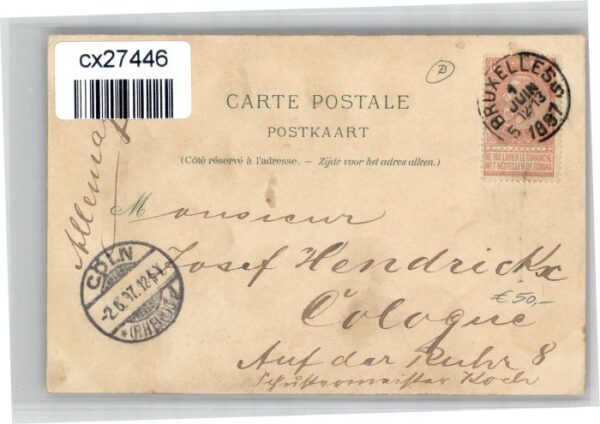 cx27446
CARTE POSTALE
POSTKAART
(Côté réservé à l'adresse. – Zijde voor het adres alleen.)
BRUXELLES 5
1
JUIN
12-13
1897
NE PAS LIVRER LE DIMANCHE
NIET BESTELLEN OP ZONDAG
Allemagne
Monsieur
Josef Hendrickx
€50,-
Cologne
Auf der Ruhr 8
Schustermeister Koch
CÖLN
-2.6.97.12-1
*(RHEIN)